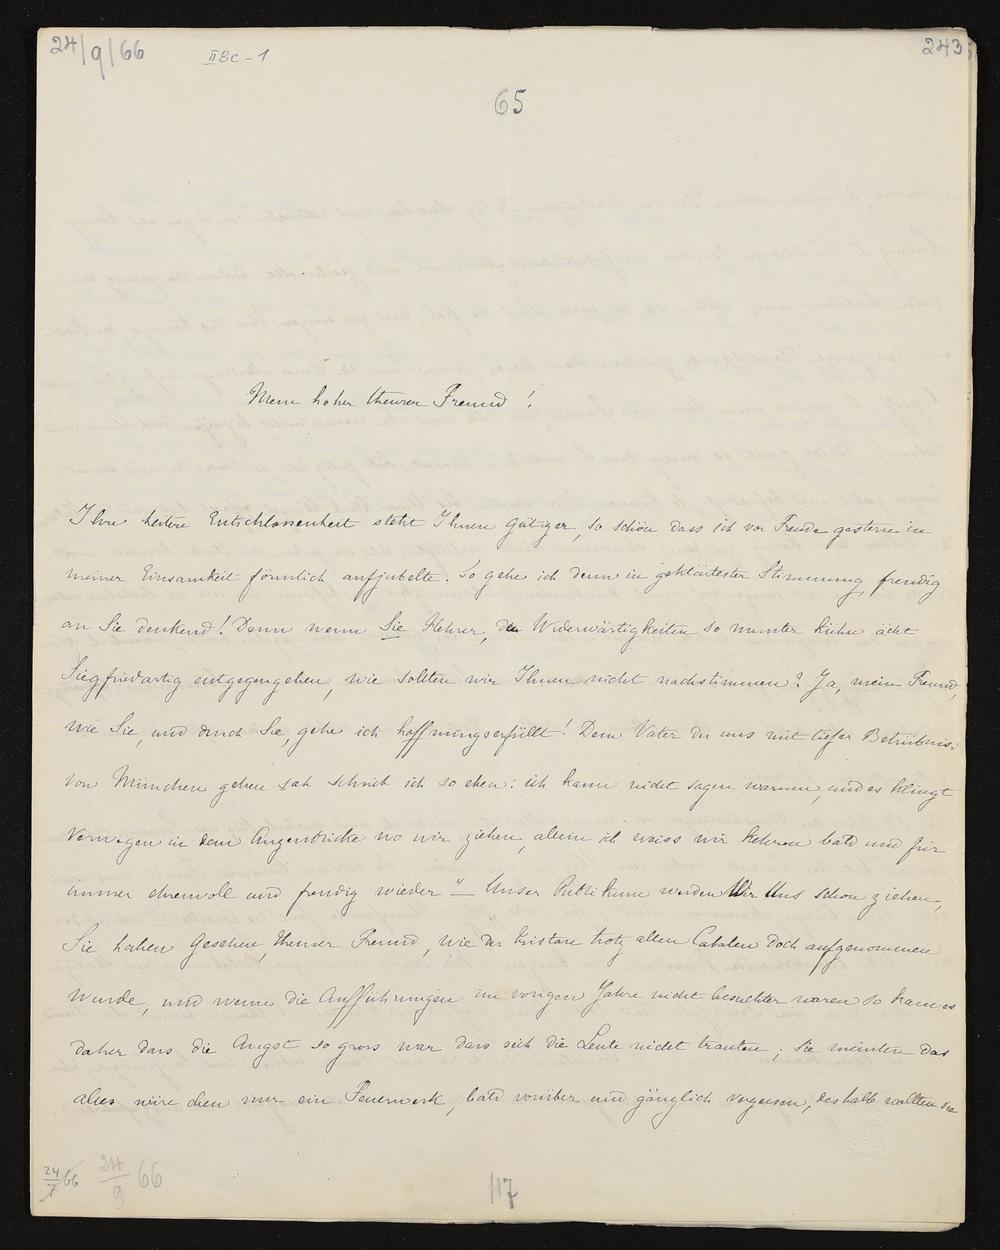 24/9/66
II BC - 1
243
65
Mein hoher theurer Freund!
Ihre heitere Entschlossenheit steht Ihnen Gütiger, so schön dass ich vor Freude gestern in
meiner Einsamkeit förmlich aufjubelte. So gehe ich denn in geklärtester Stimmung, freudig
an Sie denkend! Denn wenn Sie Hehrer, den Widerwärtigkeiten so munter kühn ächt
Siegfriedartig entgegengehen, wie sollten wir Ihnen nicht nachstimmen? Ja, mein Freund,
wie Sie, und durch Sie, gehe ich hoffnungserfüllt! Dem Vater der uns mit tiefer Betrübniss
von München gehen sah schrieb ich so eben: ich kann nicht sagen warum, und es klingt
verwegen in dem Augenblicke wo wir ziehen, allein ich weiss wir kehren bald und für
immer ehrenvoll und freudig wieder" — Unser Publikum werden Wir Uns schon ziehen,
Sie haben gesehen, theurer Freund, wie der Tristan trotz allen Cabalen doch aufgenommen
wurde, und wenn die Aufführungen im vorigen Jahre nicht besuchter waren so kam es
daher dass die Angst so gross war dass sich die Leute nicht trauten; sie meinten das
alles wäre eben nur ein Feuerwerk, bald vorüber und gänzlich vergessen, deshalb wollten sie
24/7 66
24/9 66
117